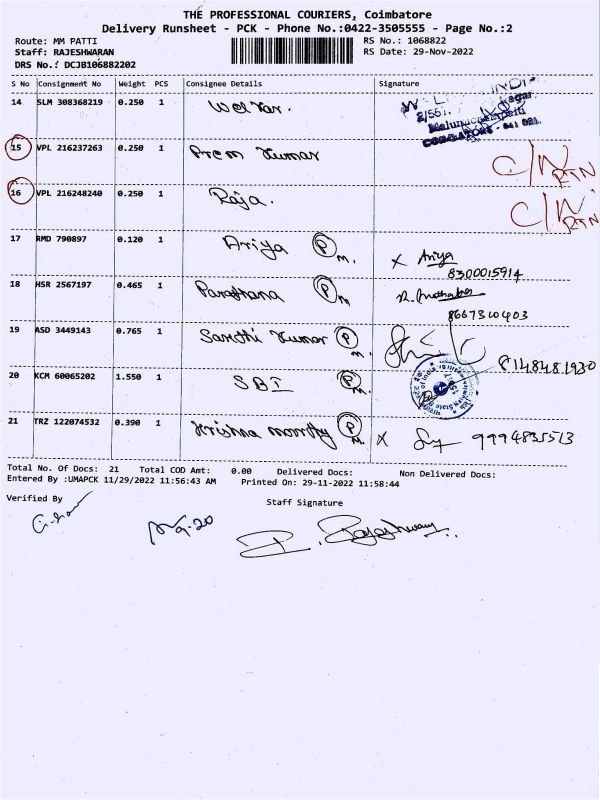 THE PROFESSIONAL COURIERS, Coimbatore
Delivery Runsheet - PCK - Phone No.:0422-3505555 - Page No.:2
Route: MM PATTI RS No.: 1068822
Staff: RAJESHWARAN RS Date: 29-Nov-2022
DRS No.: DCJB106882202
S No Consignment No Weight PCS Consignee Details Signature
14 SLM 308368219 0.250 1
8/551,
COIMBATORE - 641 021.
15 VPL 216237263 0.250 1 Prem Kumar C/N RTN
16 VPL 216248240 0.250 1 Raja. C/N. RTN
17 RMD 790897 0.120 1 Ariya P M. x Ariya
8300015914
18 HSR 2567197 0.465 1 P M
8667310403
19 ASD 3449143 0.765 1 Kumar P M. 8148481930
20 KCM 60065202 1.550 1 SBI P M.
21 TRZ 122074532 0.390 1 Krishna moorthy P M. x 9994835513
Total No. Of Docs: 21 Total COD Amt: 0.00 Delivered Docs: Non Delivered Docs:
Entered By :UMAPCK 11/29/2022 11:56:43 AM Printed On: 29-11-2022 11:58:44
Verified By Staff Signature
9.20